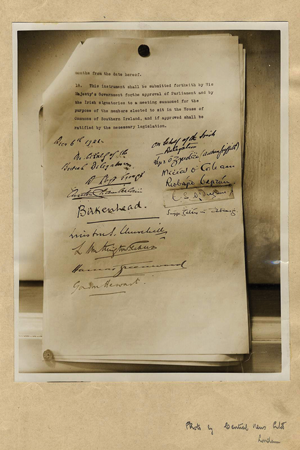 months from the date hereof.
18. This instrument shall be submitted forthwith by His
Majesty's Government for the approval of Parliament and by
the Irish signatories to a meeting summoned for the
purpose of the members elected to sit in the House of
Commons of Southern Ireland, and if approved shall be
ratified by the necessary legislation.
Dec 6th 1921.
On behalf of the
British Delegation
D Lloyd George
Austen Chamberlain
Birkenhead.
Winston S. Churchill
L Worthington-Evans
Hamar Greenwood
Gordon Hewart
On behalf of the Irish
Delegation
(Arthur Griffith)
Photo by Central News Ltd
London